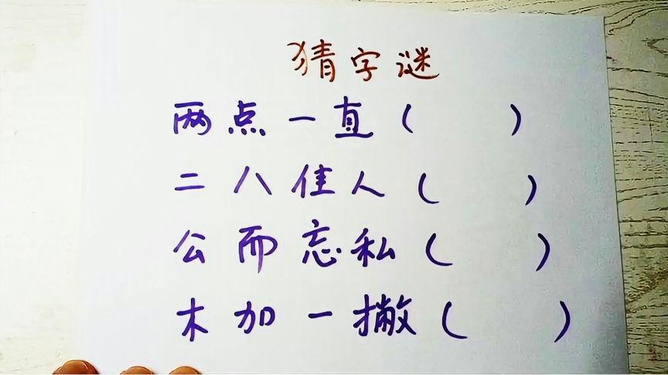 猜字谜
两点一直(    )
二八佳人(    )
公而忘私(    )
木加一撇(    )